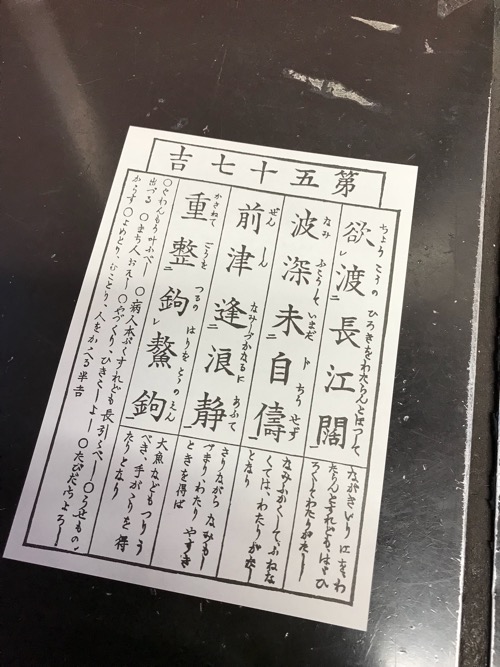 第五十七吉
欲レ渡二長江闊一
ちょうこうのひろきをわたらんとほつして
ながきひろ江をわたらんとすれども、はゞひろくしてわたりがたし
波深未二自儔一
なみふこうしていまだトありせず
なみふかくしてふねなくては、わたりがたしとなり
前津逢二浪静一
ぜんしんなみしづかなるにあふて
さりながらなみもしづまりわたりやすきときを得ば
重整二鉤レ鰲鉤一
かさねてごうをつるのはりをとゝのえん
大魚などもつりうべき、手がゝりを得たらとなり
〇ぐわんもう叶ふべし 〇病人本ぷくすれども長引くべし 〇うせもの出づる 〇まち人おそし 〇やづくり ひきこしよし 〇たびだちよろしからず 〇よめとり、むことり、人をかゝへる半吉